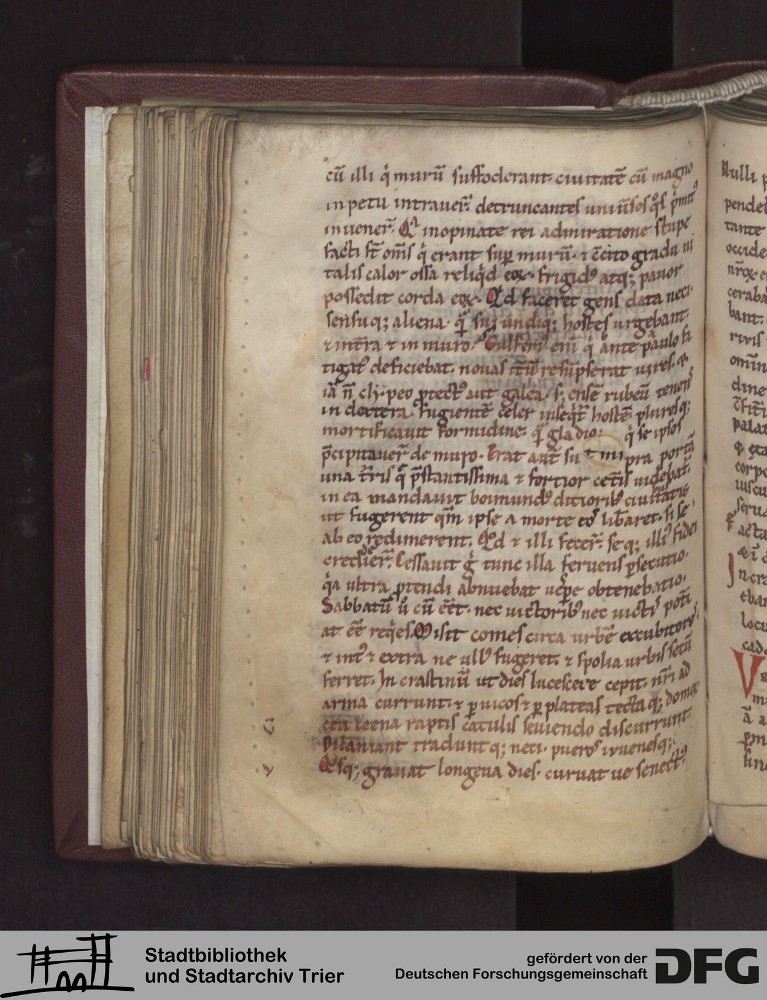 cũ illi q̇ murũ suffoderant. ciuitatẽ cũ magno
inpetu intrauer̃. detruncantes uniũsos q̃s p̃mit
inuener̃. Et inopinate rei admiratione stupe
facti st̃ om̃s q̇ erant sup murũ. ⁊ c̃cito gradu ui
talis calor ossa reliqḋ eoꝝ. frigidꝰ atq; pauor
possedit corda eoꝝ. Qḋ faceret gens data neci.
sensuq; aliena. q̃ sui undiq; hostes urgebant.
⁊ int̃ra ⁊ in muro. Guilfer̃ eni q̇ ante paulo fa
tigatꝰ deficiebat. nouas it̃ũ resũpserat uires.
iã ñ clipeo ꝓtectꝰ aut galea. s; ensẽ rubeũ tenens
in dextera. fugientẽ celer inseqt̃ hostẽ. pluresq;
mortificauit formidine. q̃ gladio. q̇ se ipsos
p̃cipitauer̃ de muro. Erat aut̃ su pra portã
una t̃ris q̃ p̃stantissima ⁊ fortior cet̃is uidebat.
in ea mandauit boimundꝰ ditiorib; ciuitatis
ut fugerent qm̃ ipse a morte eos lib̃aret. si se
ab eo redimerent. Qḋ ⁊ illi fecer̃. seq; illiꝰ fidei
credider̃. Cessauit g̃ tunc illa feruens p̃secutio.
q̃a ultra ꝓtendi abnuebat uesp̃e obtenebratio.
Sabbatũ ũ cũ eẽt. nec uictorib; nec uictis pot̃
at eẽ req̇es. Misit comes circa urbẽ excubitores
⁊ int̃ ⁊ extra ne ullꝰ fugeret. ⁊ spolia urbis secũ
ferret. In crastinũ ut dies lucescere cepit. nr̃i ad
arma currunt. ⁊ p uicos ⁊ p plateas tectaq; domoꝝ
ceu leena raptis catulis seuiendo discurrunt.
Dilaniant traduntq; neci. pueros iuuenesq;
Qosq; grauat longeua dies. curuat ue senectꝰ.
Nulli p
pende
tante
occide
nr̃oꝝ e
ceraba
bant.
riuis
omñ
dine
corpo
locu
cade
Stadtbibliothek
und Stadtarchiv Trier
gefördert von der
Deutschen Forschungsgemeinschaft
DFG